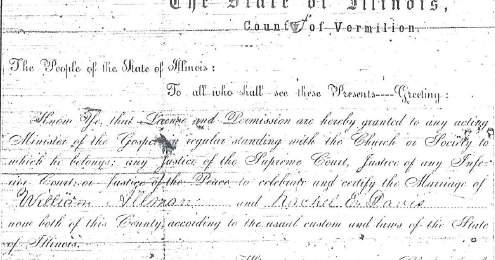 The State of Illinois,
County of Vermilion.
The People of the State of Illinois:
To all who shall see these Presents----Greeting:
Know Ye, that License and Permission are hereby granted to any acting
Minister of the Gospel in regular standing with the Church or Society to
which he belongs; any Justice of the Supreme Court, Justice of any Infe-
rior Court, or Justice of the Peace, to celebrate and certify the Marriage of
William Allman and Rachel E. Davis
now both of this County, according to the usual custom and laws of the State
of Illinois.